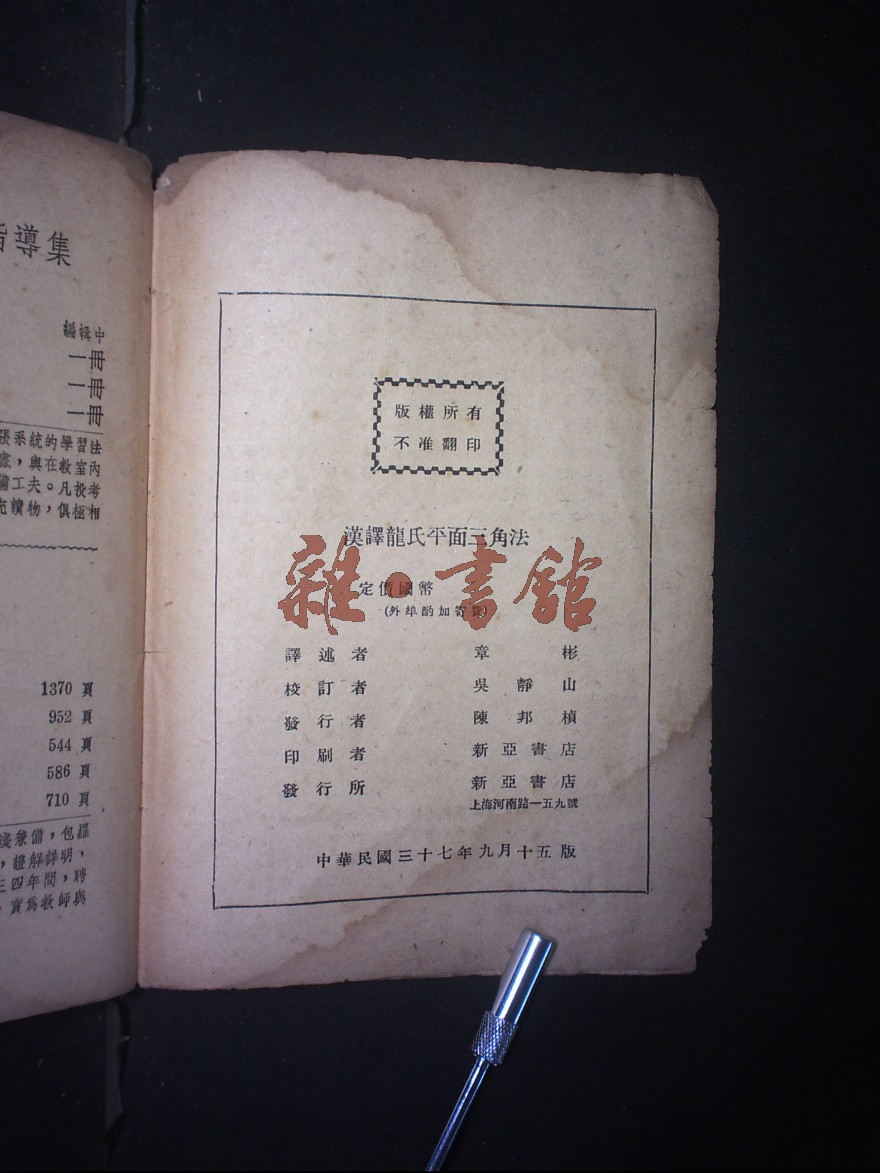 指導集
編輯中
一冊
一冊
一冊
張系統的學習法
盡，與在教室內
備工夫。凡投考
充讀物，俱極相
1370 頁
952 頁
544 頁
586 頁
710 頁
淺兼備，包羅
，證解詳明，
三四年間，聘
實爲教師與
版權所有
不准翻印
漢譯龍氏平面三角法
雜·書舘
定價國幣
(外埠酌加寄費)
譯述者 章彬
校訂者 吳靜山
發行者 陳邦楨
印刷者 新亞書店
發行所 新亞書店
上海河南路一五九號
中華民國三十七年九月十五版